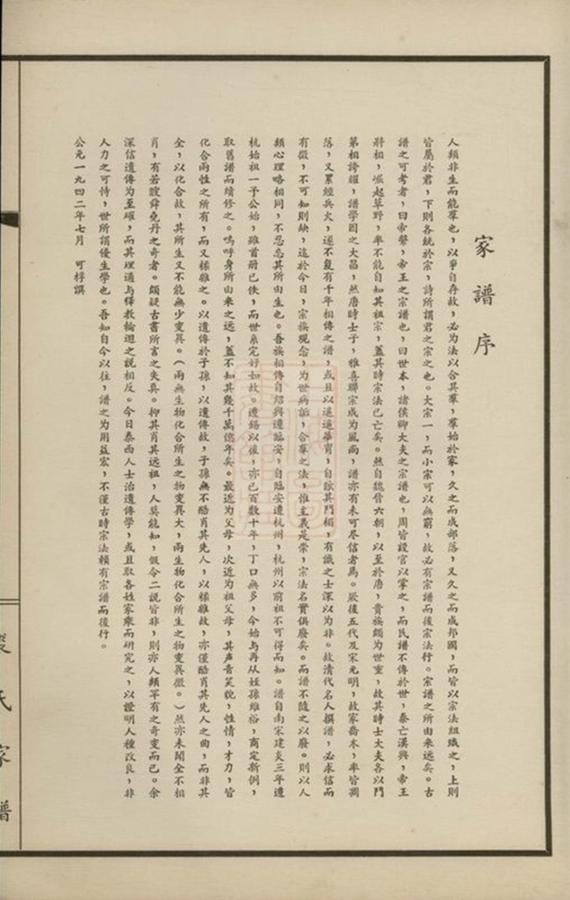 家譜序
人類非生而能羣也，以爭自存故，必為法以合其羣，羣始於家，久之而成部落，又久之而成邦國，而皆以宗法組織之，上則
皆屬於君，下則各統於宗，詩所謂君之宗之也。大宗一，而小宗可以無窮，故必有宗譜而後宗法行。宗譜之所由來遠矣。古
譜之可考者，曰帝繫，帝王之宗譜也，曰世本，諸侯卿大夫之宗譜也，周皆設官以掌之，而氏譜不傳於世，秦亡漢興，帝王
將相，崛起草野，率不能自知其祖宗，蓋其時宗法已亡矣。然自魏晉六朝，以至於唐，貴族頗為世重，故其時士大夫各以門
第相誇耀，譜學因之大昌，然唐時士子，雅喜聯宗成為風尚，譜亦有未可盡信者焉。厥後五代及宋元明，故家喬木，率皆凋
落，又累經兵火，遂不復有千年相傳之譜，或且以遙遙華胄，自詡其門楣，有識之士深以為非。故清代名人撰譜，必求信而
有徵，不可知則缺，迄於今日，宗族觀念，為世病詬，合羣之法，惟主義是崇，宗法名實俱廢矣。而譜不隨之以廢。則以人
類心理略相同，不忍忘其所由生也。吾族相傳自紹興遷臨安，自臨安遷杭州，杭州以前祖不可得而知。譜自南宋建炎三年遷
杭始祖一予公始，雖首冊已佚，而世系完好如故。遷錫以後，亦已百數十年，丁口無多，今始與再從姪孫維裕，商定新例，
取舊譜而續修之。嗚呼身所由來之遠，蓋不知其幾千萬億年矣。最近為父母，次近為祖父母，其聲音笑貌，性情，才力，皆
化合兩性之所有，而又樣雜之。以遺傳於子孫，以遺傳故，子孫無不酷肖其先人，以樣雜故，亦僅酷肖其先人之曲，而非其
全，以化合故，其所生又不能無少變異。（兩無生物化合所生之物變異大，兩生物化合所生之物變異微。）然亦未聞全不相
肖，有若瞍舜堯丹之奇者。頗疑古書所言之失真。抑其肖其遠祖，人莫能知，假令二說皆非，則亦人類罕有之奇變而已。余
深信遺傳為至確，而其理適與釋教輪迴之說相反。今日泰西人士治遺傳學，或且取各姓家乘而研究之，以證明人種改良，非
人力之可恃，世所謂優生學也。吾知自今以往，譜之為用益宏，不僅古時宗法賴有宗譜而後行。
公元一九四二年七月　可桴譔
氏家譜